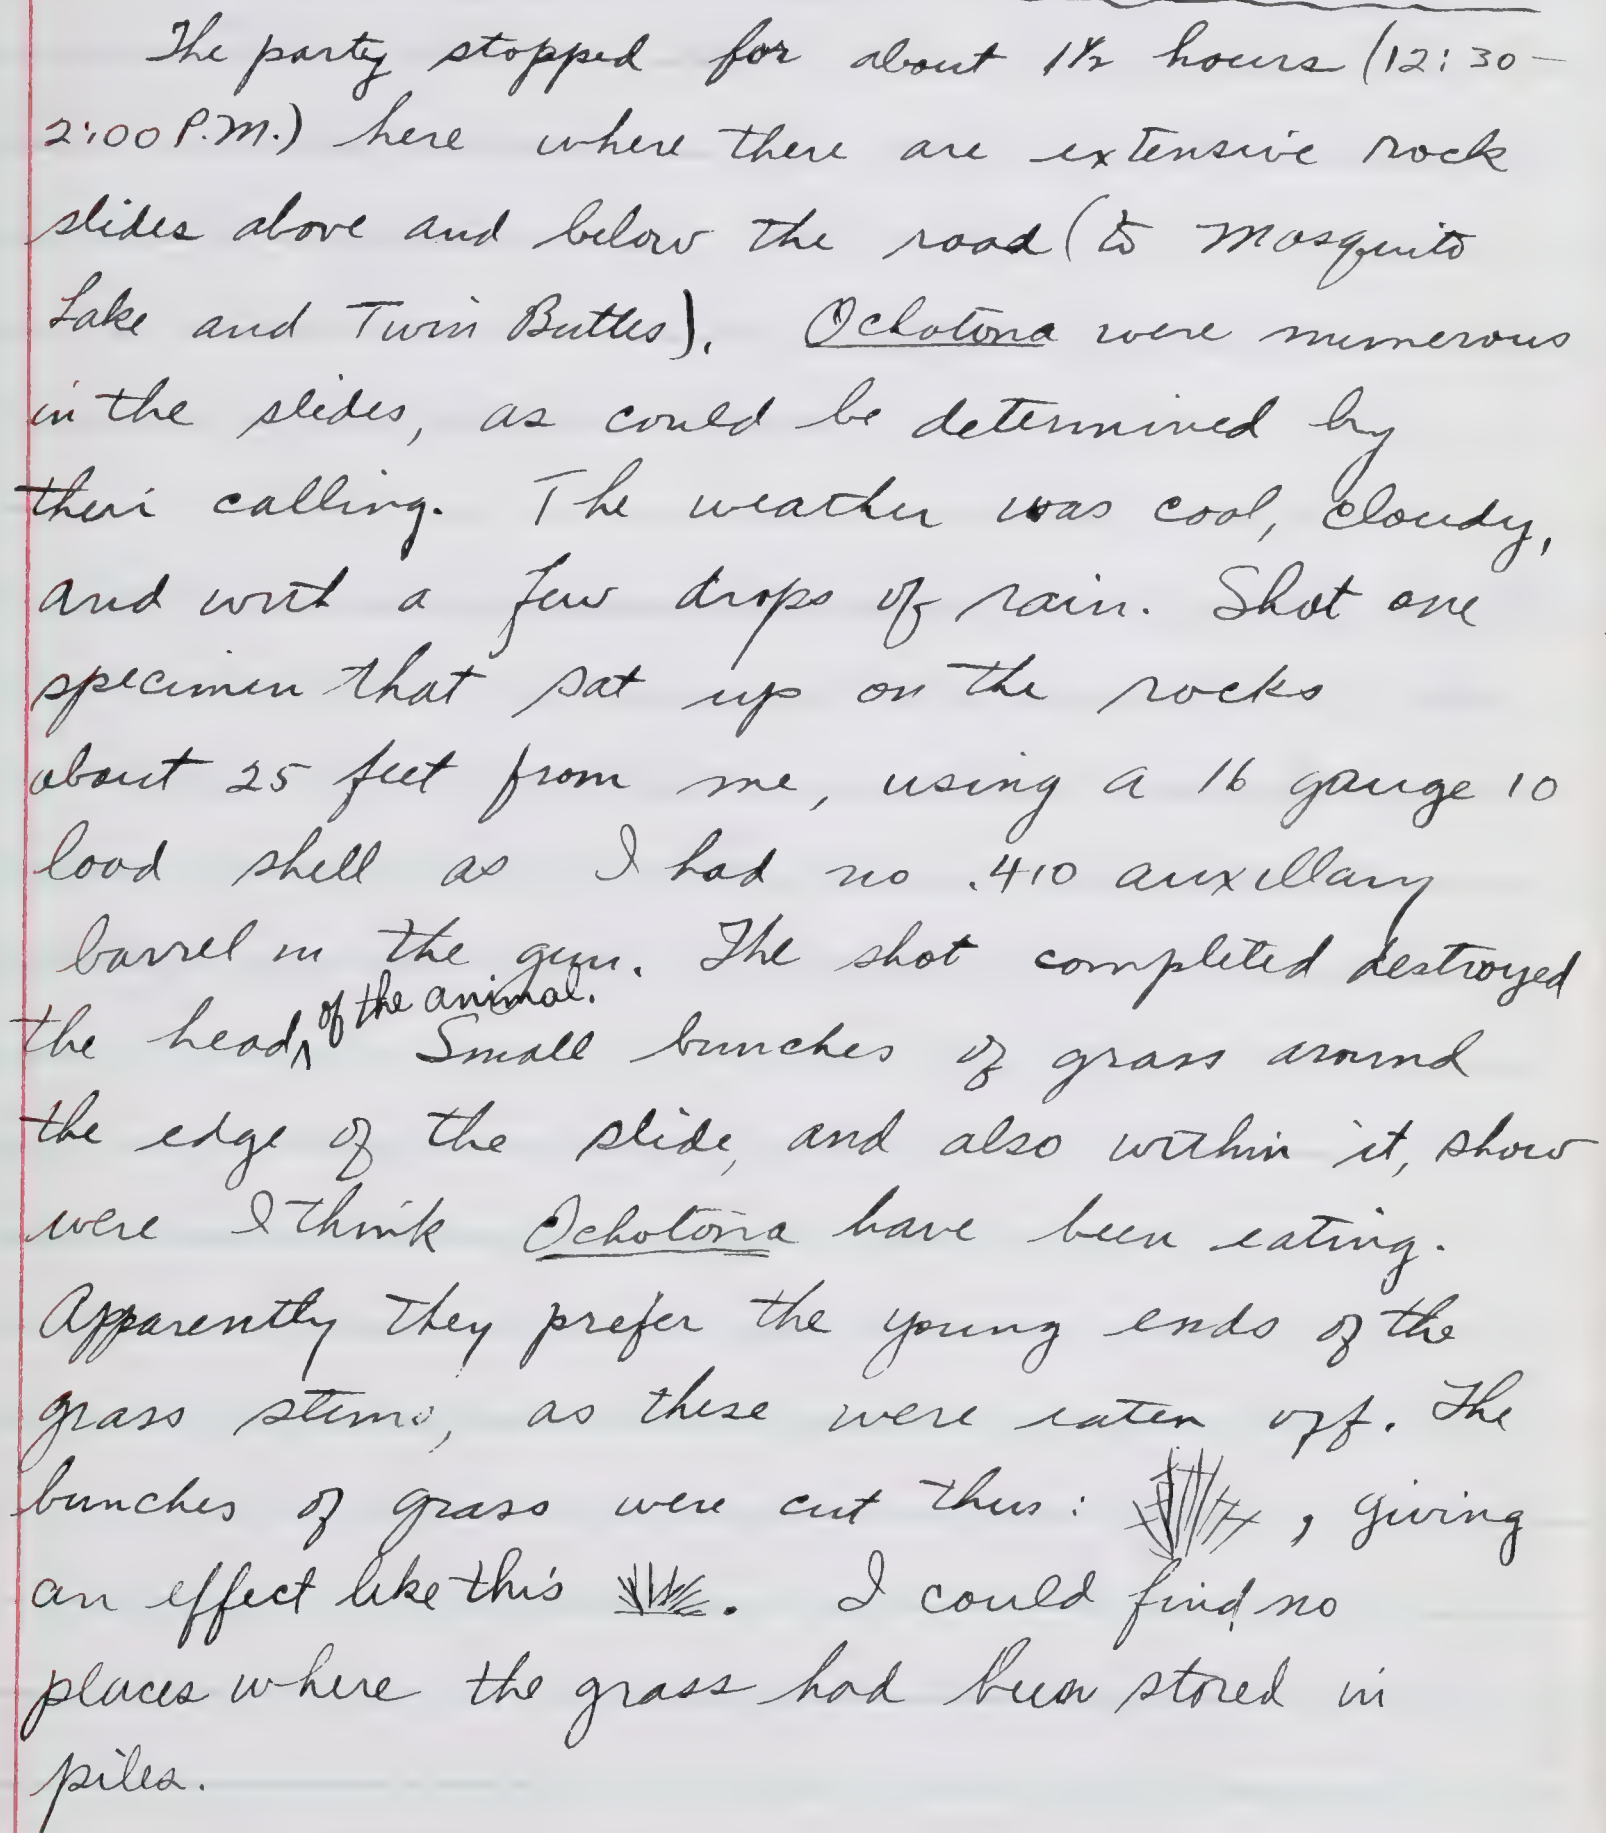 The party stopped for about 1½ hours (12:30-
2:00 P.M.) here where there are extensive rock
slides above and below the road (to Mosquito
Lake and Twin Buttes). Ochotona were numerous
in the slides, as could be determined by
their calling. The weather was cool, cloudy,
and with a few drops of rain. Shot one
specimen that sat up on the rocks
about 25 feet from me, using a 16 gauge 10
load shell as I had no .410 auxillary
barrel in the gun. The shot completed destroyed
the head of the animal. Small bunches of grass around
the edge of the slide, and also within it, show
were I think Ochotona have been eating.
Apparently they prefer the young ends of the
grass stems, as these were eaten off. The
bunches of grass were cut thus: , giving
an effect like this . I could find no
places where the grass had been stored in
piles.